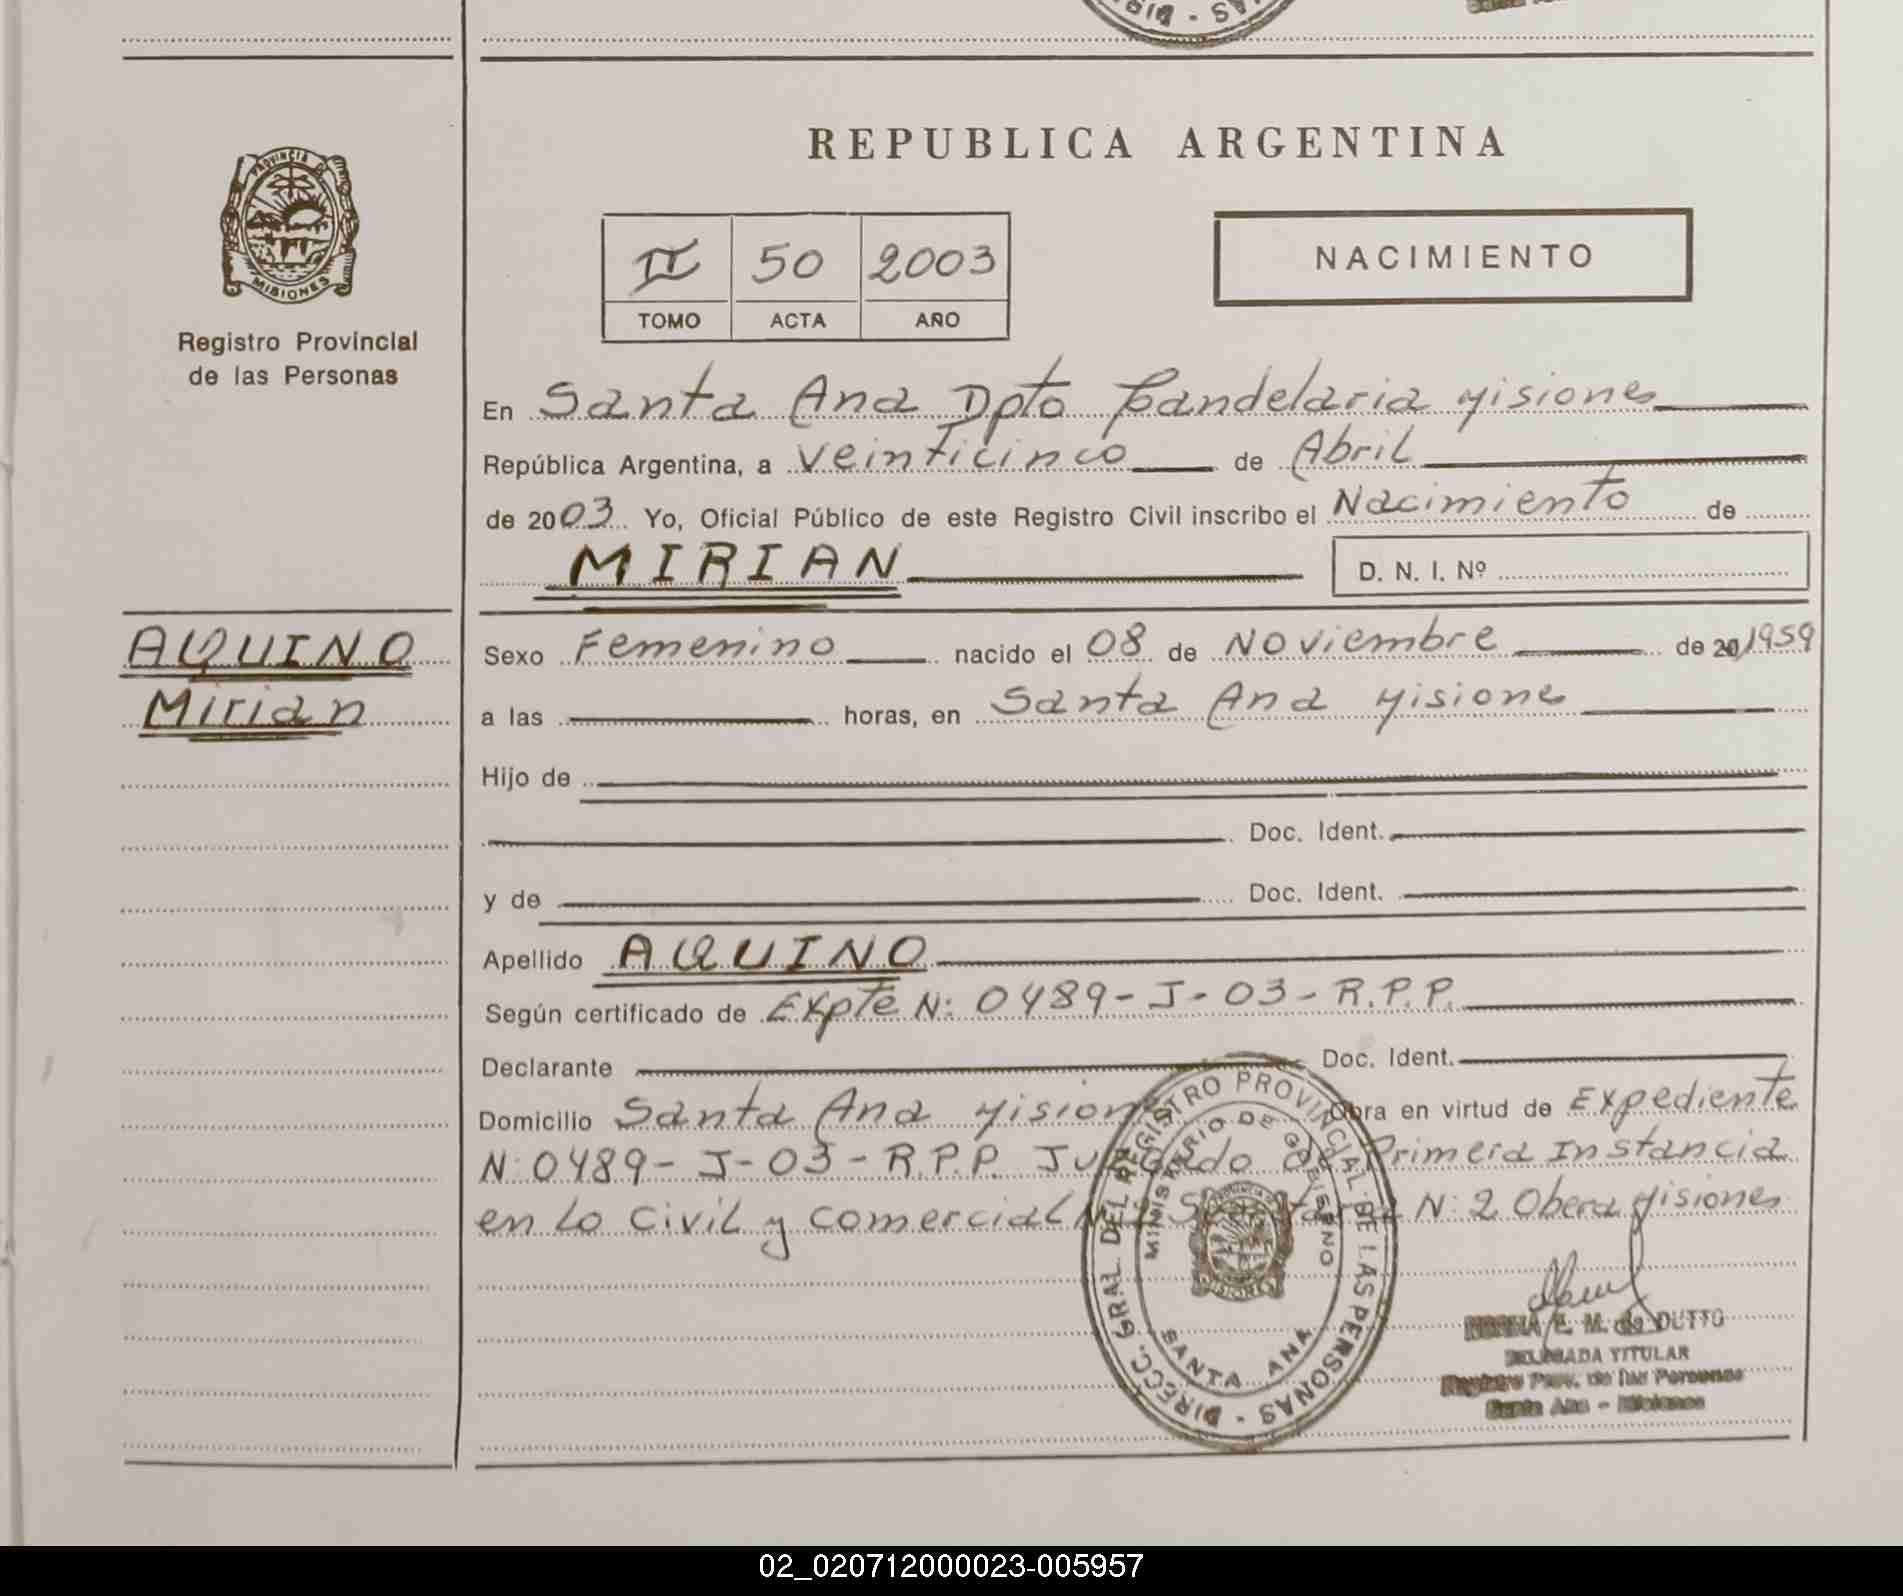 REPUBLICA ARGENTINA
PROVINCIA DE MISIONES
Registro Provincial
de las Personas
II 50 2003
TOMO ACTA AÑO
NACIMIENTO
En Santa Ana Dpto Candelaria Misiones
República Argentina, a veinticinco de Abril
de 2003 Yo, Oficial Público de este Registro Civil inscribo el Nacimiento de
MIRIAN D. N. I. Nº
AQUINO
Mirian
Sexo Femenino nacido el 08 de Noviembre de 20 1959
a las horas, en Santa Ana Misiones
Hijo de
Doc. Ident.
y de Doc. Ident.
Apellido AQUINO
Según certificado de Expte N: 0489-J-03-R.P.P.
Declarante Doc. Ident.
Domicilio Santa Ana Misiones Obra en virtud de Expediente
N: 0489-J-03-R.P.P. Juzgado de Primera Instancia
en lo Civil y Comercial N: 2 Obera Misiones
DIRECC. GRAL. DEL REGISTRO PROVINCIAL DE LAS PERSONAS
MINISTERIO DE GOBIERNO
SANTA ANA
E. M. de DUTTO
DELEGADA TITULAR
Registro Prov. de las Personas
Santa Ana - Misiones
02_020712000023-005957